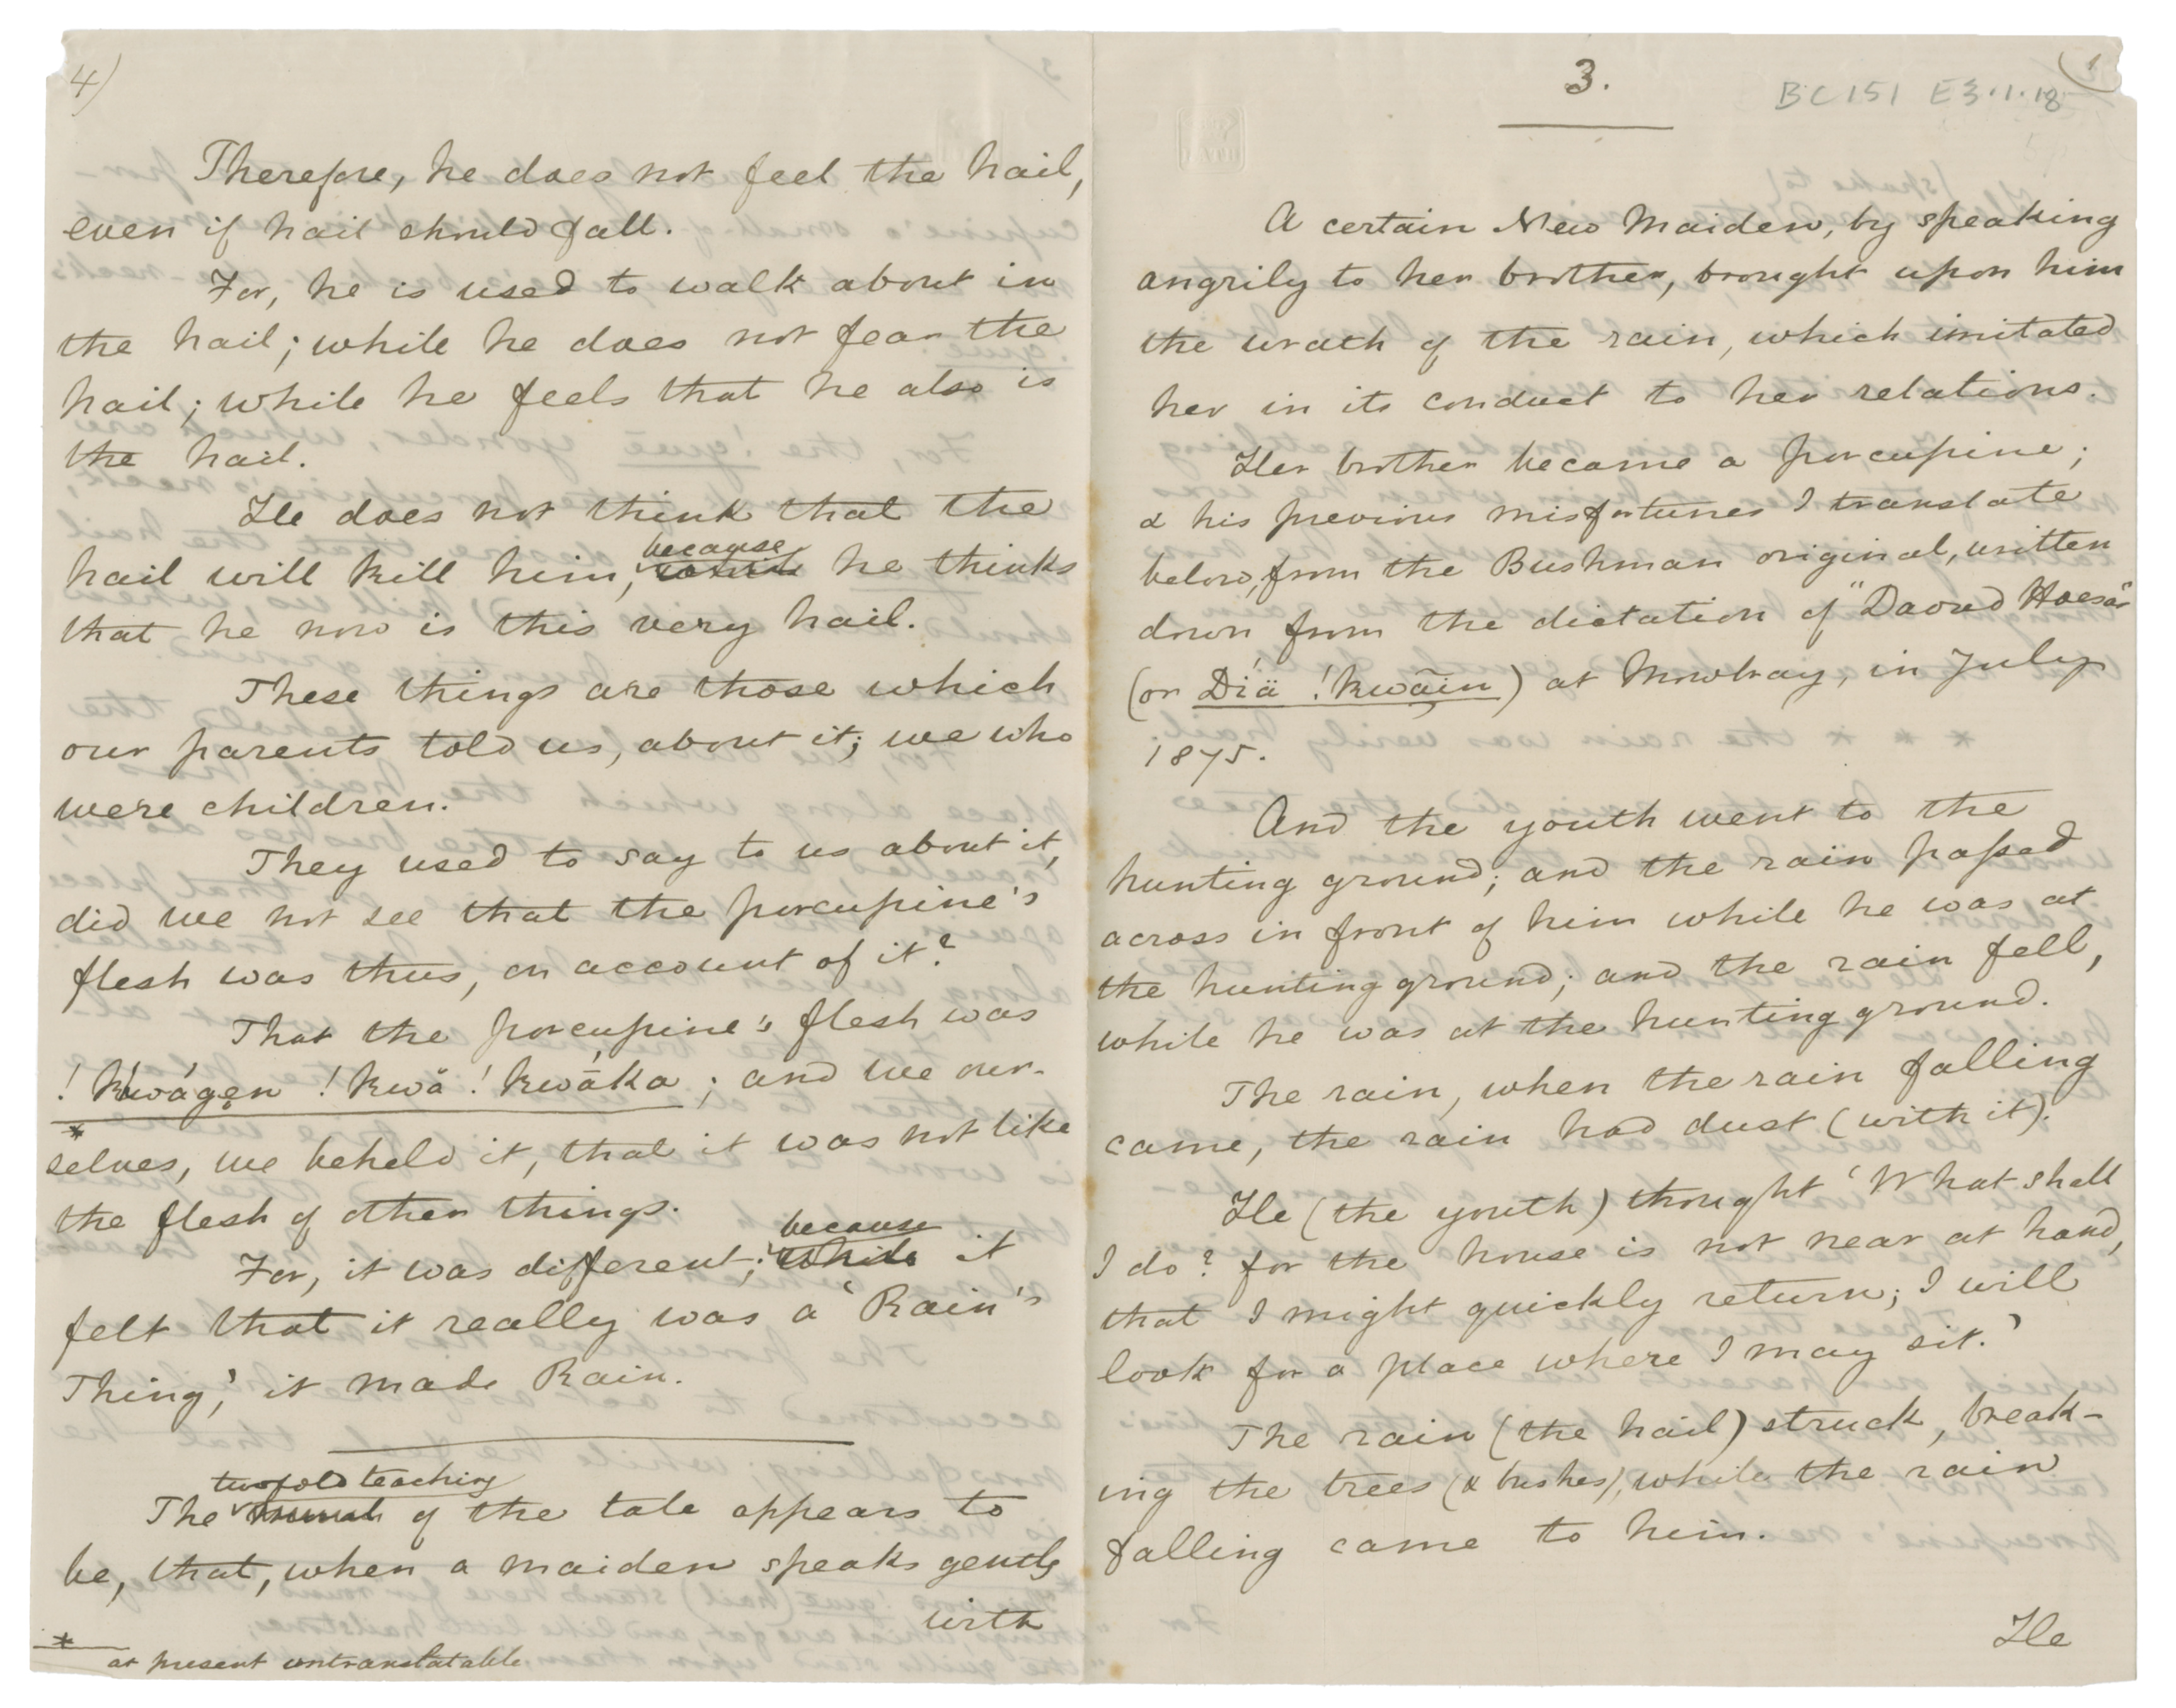 4)
Therefore, he does not feel the hail,
even if hail should fall.
For, he is used to walk about in
the hail; while he does not fear the
hail; while he feels that he also is
the hail.
He does not think that the
because
hail will kill him, while he thinks
that he now is this very hail.
These things are those which
our parents told us, about it; we who
were children.
They used to say to us about it,
did we not see that the porcupine's
flesh was thus, on account of it?
That the porcupine's flesh was
! kwágen ! kwä ! kwāka ; and we our-
*
selves, we beheld it, that it was not like
the flesh of other things.
because
For, it was different; while it
felt that it really was a 'Rain's
Thing,' it made Rain.
twofold teaching
The of the tale appears to
be, that, when a maiden speaks gently
with
*
at present untranslatable
3.
BC151 E3.1.18
(1
A certain New Maiden, by speaking
angrily to her brother, brought upon him
the wrath of the rain, which imitated
her in its conduct to her relations.
Her brother became a porcupine;
& his previous misfortunes I translate
below, from the Bushman original, written
down from the dictation of "Daoud Hoesar"
(or Díä !kwãin) at Mowbray, in July
1875.
And the youth went to the
hunting ground; and the rain passed
across in front of him while he was at
the hunting ground; and the rain fell,
while he was at the hunting ground.
The rain, when the rain falling
came, the rain had dust (with it).
He (the youth) thought 'What shall
I do? for the house is not near at hand,
that I might quickly return; I will
look for a place where I may sit.'
The rain (the hail) struck, break-
ing the trees (& bushes), while the rain
falling came to him.
He